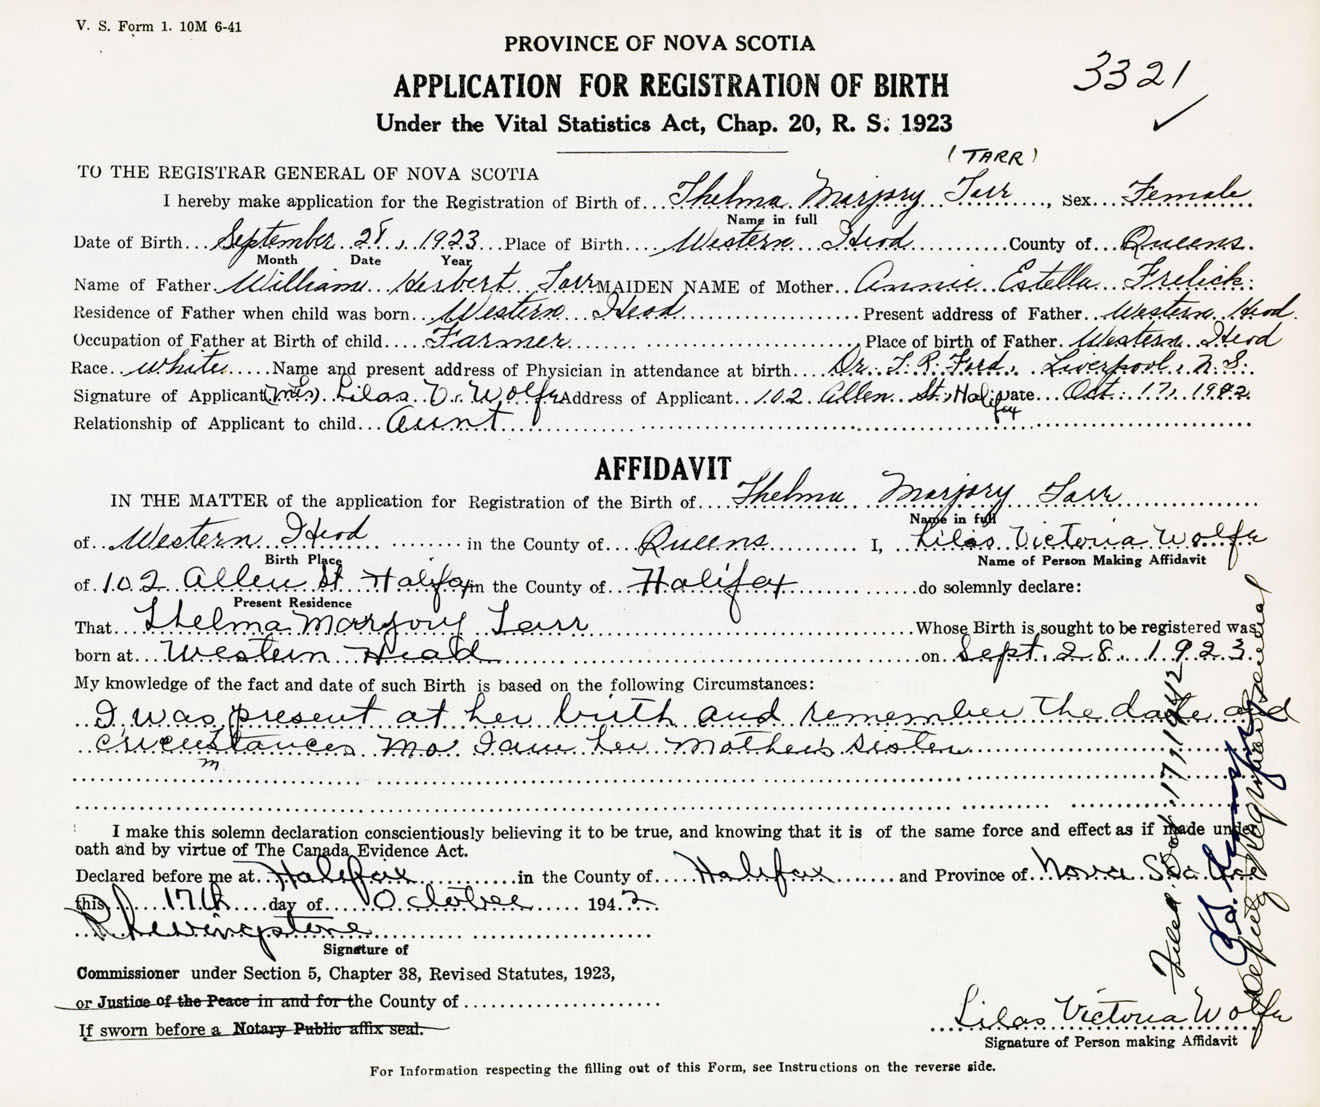 V. S. Form 1. 10M 6-41
PROVINCE OF NOVA SCOTIA
3321
APPLICATION FOR REGISTRATION OF BIRTH
Under the Vital Statistics Act, Chap. 20, R. S. 1923
(TARR)
TO THE REGISTRAR GENERAL OF NOVA SCOTIA
I hereby make application for the Registration of Birth of Thelma Marjory Tarr, Sex Female
Name in full
Date of Birth September 28, 1923 Place of Birth Western Head County of Queens.
Month Date Year
Name of Father William Herbert Tarr MAIDEN NAME of Mother Annie Estella Frelick.
Residence of Father when child was born Western Head Present address of Father Western Head.
Occupation of Father at Birth of child Farmer Place of birth of Father Western Head
Race White Name and present address of Physician in attendance at birth Dr. J. R. Ford, Liverpool, N.S.
Signature of Applicant (Mrs) Lilas V. Wolfe Address of Applicant 102 Allen St, Halifax Date Oct. 17, 1942
Relationship of Applicant to child Aunt
AFFIDAVIT
IN THE MATTER of the application for Registration of the Birth of Thelma Marjory Tarr
Name in full
of Western Head in the County of Queens I, Lilas Victoria Wolfe
Birth Place Name of Person Making Affidavit
of 102 Allen St Halifax in the County of Halifax do solemnly declare:
Present Residence
That Thelma Marjory Tarr Whose Birth is sought to be registered was
born at Western Head on Sept. 28. 1923.
My knowledge of the fact and date of such Birth is based on the following Circumstances:
I was present at her birth and remember the date and
circumstances I am her Mother's sister
I make this solemn declaration conscientiously believing it to be true, and knowing that it is of the same force and effect as if made under
oath and by virtue of The Canada Evidence Act.
Declared before me at Halifax in the County of Halifax and Province of Nova Scotia
this 17th day of October 1942
R Livingstone
Signature of
Commissioner under Section 5, Chapter 38, Revised Statutes, 1923,
or Justice of the Peace in and for the County of
If sworn before a Notary Public affix seal.
Lilas Victoria Wolfe
Signature of Person making Affidavit
For Information respecting the filling out of this Form, see Instructions on the reverse side.
Filed Oct. 17, 1942
Deputy Registrar General